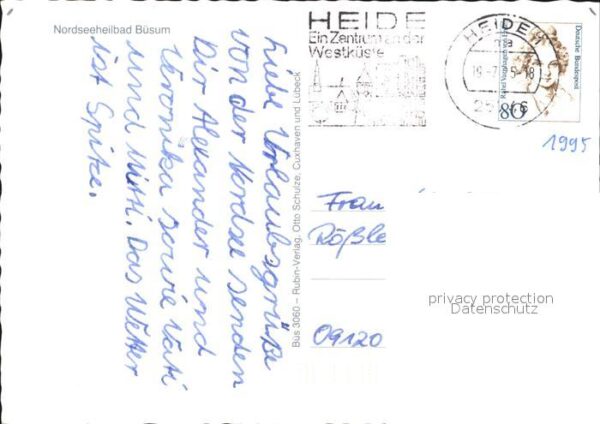 Nordseeheilbad Büsum
Liebe Urlaubsgrüße
von der Nordsee senden
Dir Alexander und
Veronika sowie Vati
und Mutti. Das Wetter
ist Spitze.
Bus 3060 – Rubin-Verlag, Otto Schulze, Cuxhaven und Lübeck
HEIDE
Ein Zentrum an der
Westküste
HEIDE
Deutsche Bundespost
80
1995
Frau
Rößle
09120
privacy protection
Datenschutz